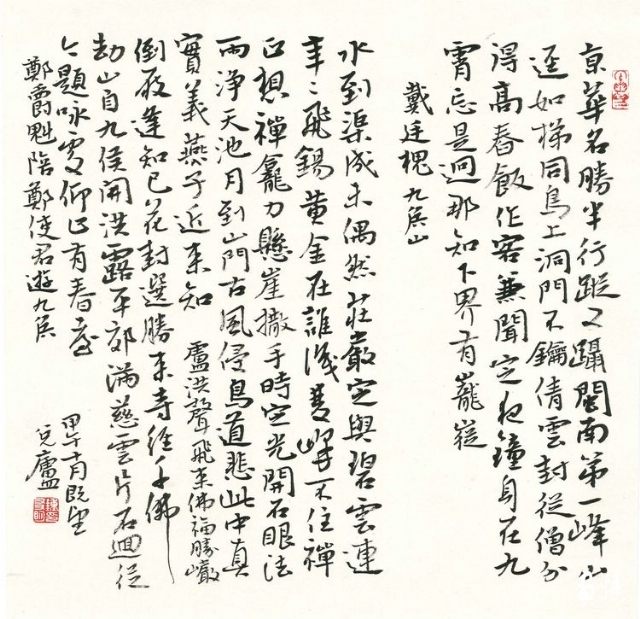 京華名勝半行蹤又躡閩南第一峰山
逕如梯同鳥上洞門不鑰倩雲封從僧分
得高舂飯作客兼聞定夜鐘身在九
霄忘是迥那知下界有巃嵸
戴廷槐九侯山
水到渠成未偶然莊嚴定與碧雲連
年年飛錫黃金在誰識雙峰不住禪
正想禪龕力懸崖撒手時空光開石眼法
雨淨天池月到山門古風侵鳥道悲此中真
實義燕子近來知 盧洪聲飛來佛福勝巖
倒屐蓬知已花封選勝來寺經千佛
劫山自九侯開洪露平郊滿慈雲片石迴從
今題詠處仰止有春臺
鄭爵魁陪鄭使君遊九侯
甲午
廬